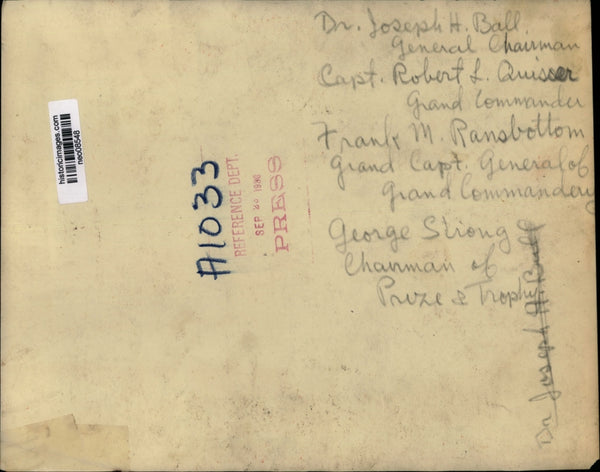 Dr. Joseph H. Ball
General Chairman
Capt. Robert L. Quisser
Grand Commander
Frank M. Ransbottom
Grand Capt. General of
Grand Commandery
George Strong
Chairman of
Prize & Trophy
Dr Joseph H. Ball
A1033
REFERENCE DEPT.
SEP
PRESS
historicimages.com
neo08548